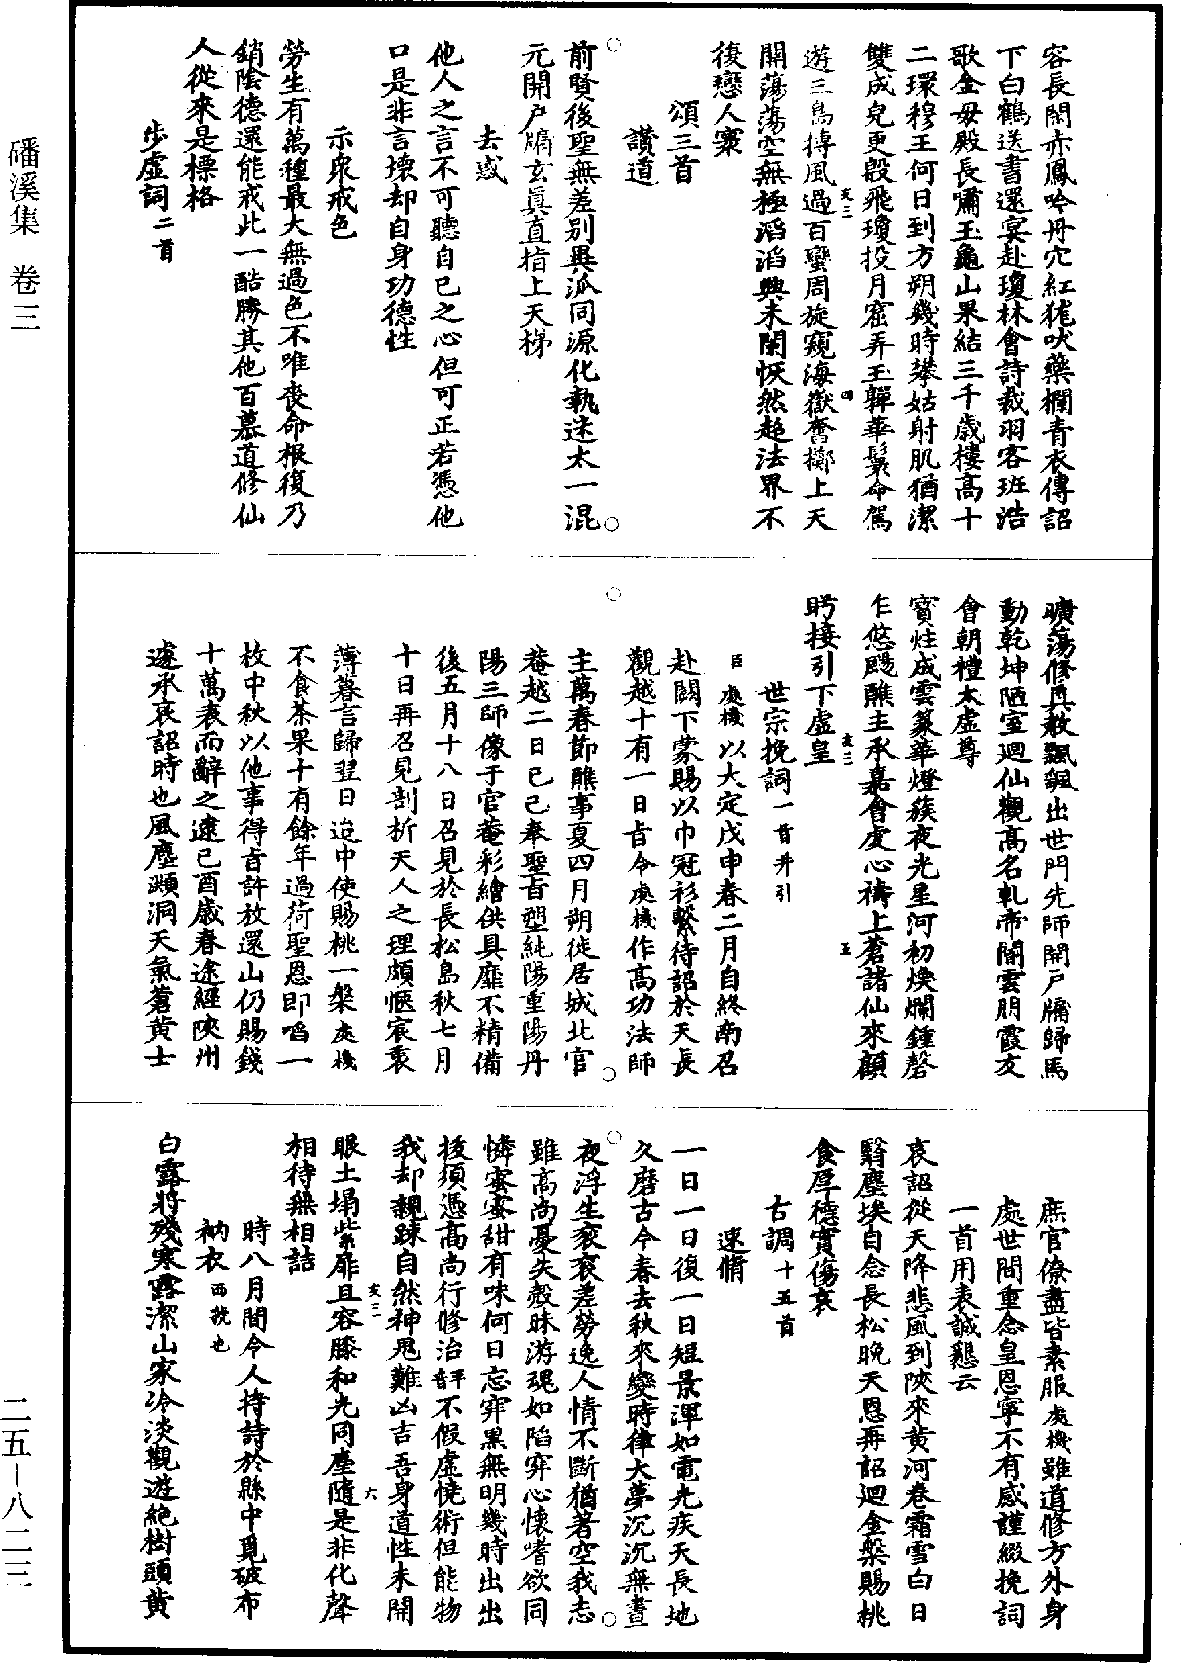 磻溪集　卷三
容長閑赤鳳吟丹穴紅狵吠藥欄青衣傳詔
下白鶴送書還寞赴瓊林會詩裁羽客班浩
歌金母殿長嘯玉龜山果結三千歲樓高十
二環穆王何日到方朔幾時攀姑射肌猶潔
雙成兒更殷飛瓊投月窟弄玉嚲華鬟命駕
遊三島摶風過百蠻周旋窺海嶽奮擲上天
開蕩蕩空無極滔滔興未闌恢然超法界不
後戀人寰
頌三首
讚道
前賢後聖無差別異泒同源化執迷太一混
元開户牖玄真直指上天梯
去惑
他人之言不可聽自己之心但可正若憑他
口是非言壞却自身功德性
示衆戒色
勞生有萬種最大無過色不唯喪命根復乃
銷陰德還能戒此一酷勝其他百慕道修仙
人從來是標格
步虛詞二首
曠蕩修真教飄飄出世門先師開户牖歸馬
動乾坤陋室迴仙觀高名軋帝閽雲朋霞友
會朝禮太虛尊
寶炷成雲篆華燈簇夜光星河初煥爛鍾磬
乍悠颺醮主承嘉會虔心禱上蒼諸仙來顧
眄接引下虛皇
世宗挽詞一首并引
臣處機以大定戊申春二月自終南召
赴闕下蒙賜以巾冠衫繫待詔於天長
觀越十有一日旨令處機作高功法師
主萬春節醮事夏四月朔徙居城北官
菴越二日己巳奉聖旨塑純陽重陽丹
陽三師像于官菴彩繪供具靡不精備
後五月十八日召見於長松島秋七月
十日再召見剖折天人之理頗愜宸衷
薄暮言歸翌日造中使賜桃一槃處機
不食茶果十有餘年過荷聖恩即啗一
枚中秋以他事得旨許放還山仍賜錢
十萬表而辭之逮己酉歲春途經陝州
遽承哀詔時也風塵澒洞天氣蒼黄士
庶官僚盡皆素服處機雖道修方外身
處世間重念皇恩寧不有感謹綴挽詞
一首用表誠懇云
哀詔從天降悲風到陝來黄河卷霜雪白日
翳塵埃自念長松晚天恩再詔迴金槃賜桃
食厚德實傷哀
古調十五首
速脩
一日一日復一日短景渾如電光疾天長地
久磨古今春去秋來變時律大夢沉沉無晝
夜浮生衮衮差勞逸人情不斷猶著空我志
雖高尚憂失殼昧游魂如陷穽心懷嗜欲同
憐蜜蜜甜有味何日忘穽黑無明幾時出出
後須憑高尚行修治詳不假虛悷術但能物
我却親踈自然神鬼難凶吉吾身道性未開
眼土塌紫扉且容膝和光同塵隨是非化聲
相待無相詰
時八月間令人持詩於縣中覓破布
衲衣西虢也
白露將殘寒露潔山家冷淡觀遊絶樹頭黄
二五－八二三